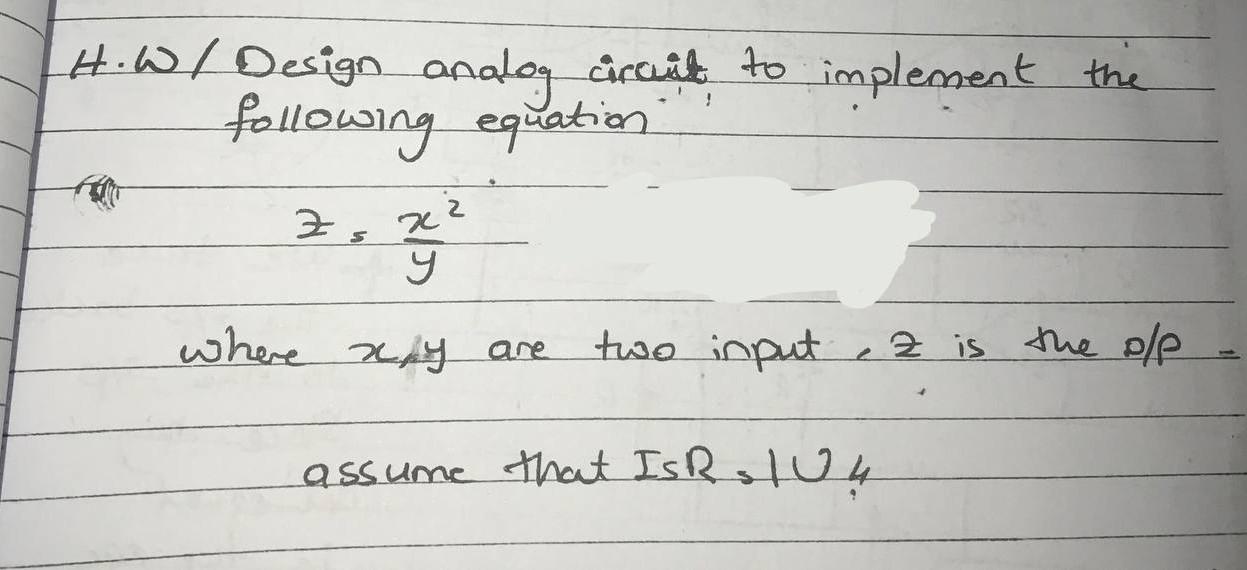 H.W/ Design analog circuit to implement the
following equation
z = x²/y
where x, y are two input, z is the o/p
assume that IsR = 1V